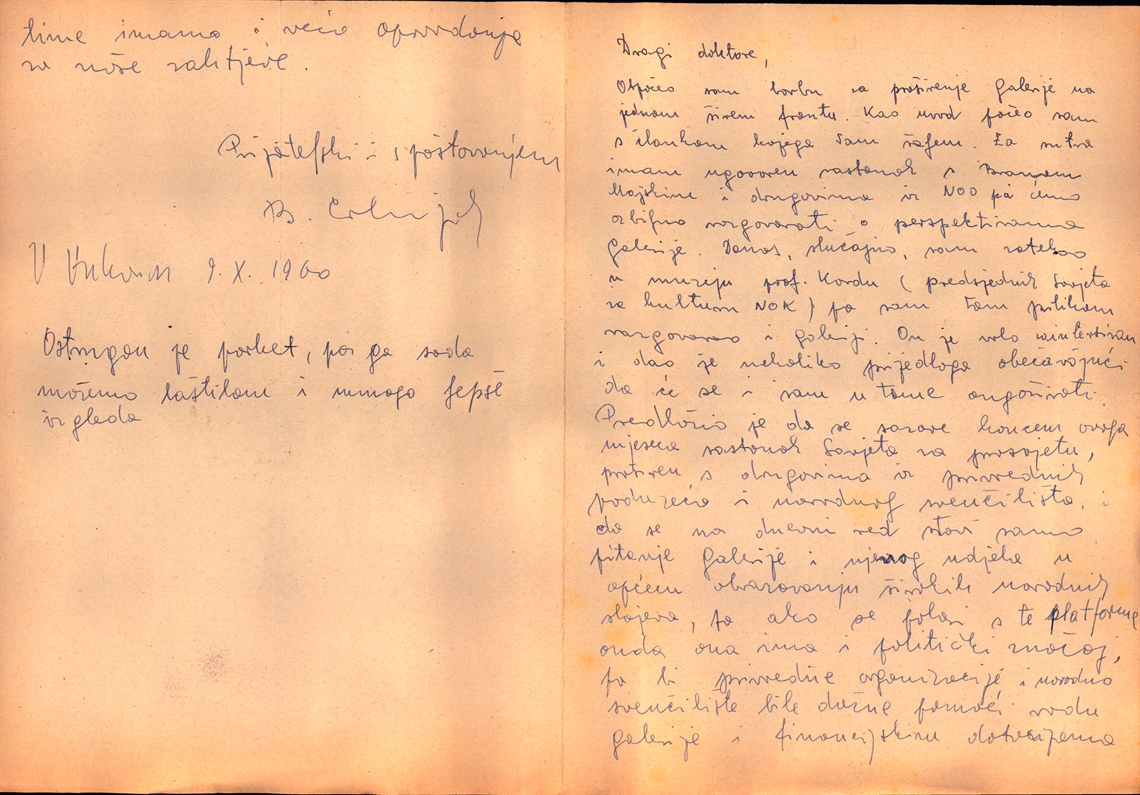 Dragi doktore,
Otpočeo sam borbu za proširenje Galerije na
jednom širem frontu. Kao uvod počeo sam
s člankom kojega Vam šaljem. Za sutra
imam ugovoren sastanak s Brankom
Majskim i drugovima iz NOO pa ćemo
ozbiljno razgovarati o perspektivama
galerije. Danas, slučajno, sam zatekao
u muzeju prof. Kordu (predsjednik Savjeta
za kulturu NOK) pa sam tom prilikom
razgovarao i o galeriji. On je vrlo zaintertisan
i dao je nekoliko prijedloga obećavajući
da će se i sam u tome angažirati.
Predložio je da se sazove koncem ovoga
mjeseca sastanak Savjeta za prosvjetu,
proširen s drugovima iz privrednih
poduzeća i narodnog sveučilišta, i
da se na dnevni red stavi samo
pitanje Galerije i njenog udjela u
općem obrazovanju širokih narodnih
slojeva, ta ako se polazi s te platforme
onda ona ima i politički značaj,
pa bi privredne organizacije i narodno
sveučilište bile dužne pomoći radu
galerije i financijskim dotacijama
time imamo i veća opravdanja
za naše zahtjeve.
Prijateljski i s poštovanjem
B.
U Vukovaru 9. X. 1960
Ostrugan je parket, pa ga sada
možemo laštilom i mnogo ljepše
izgleda